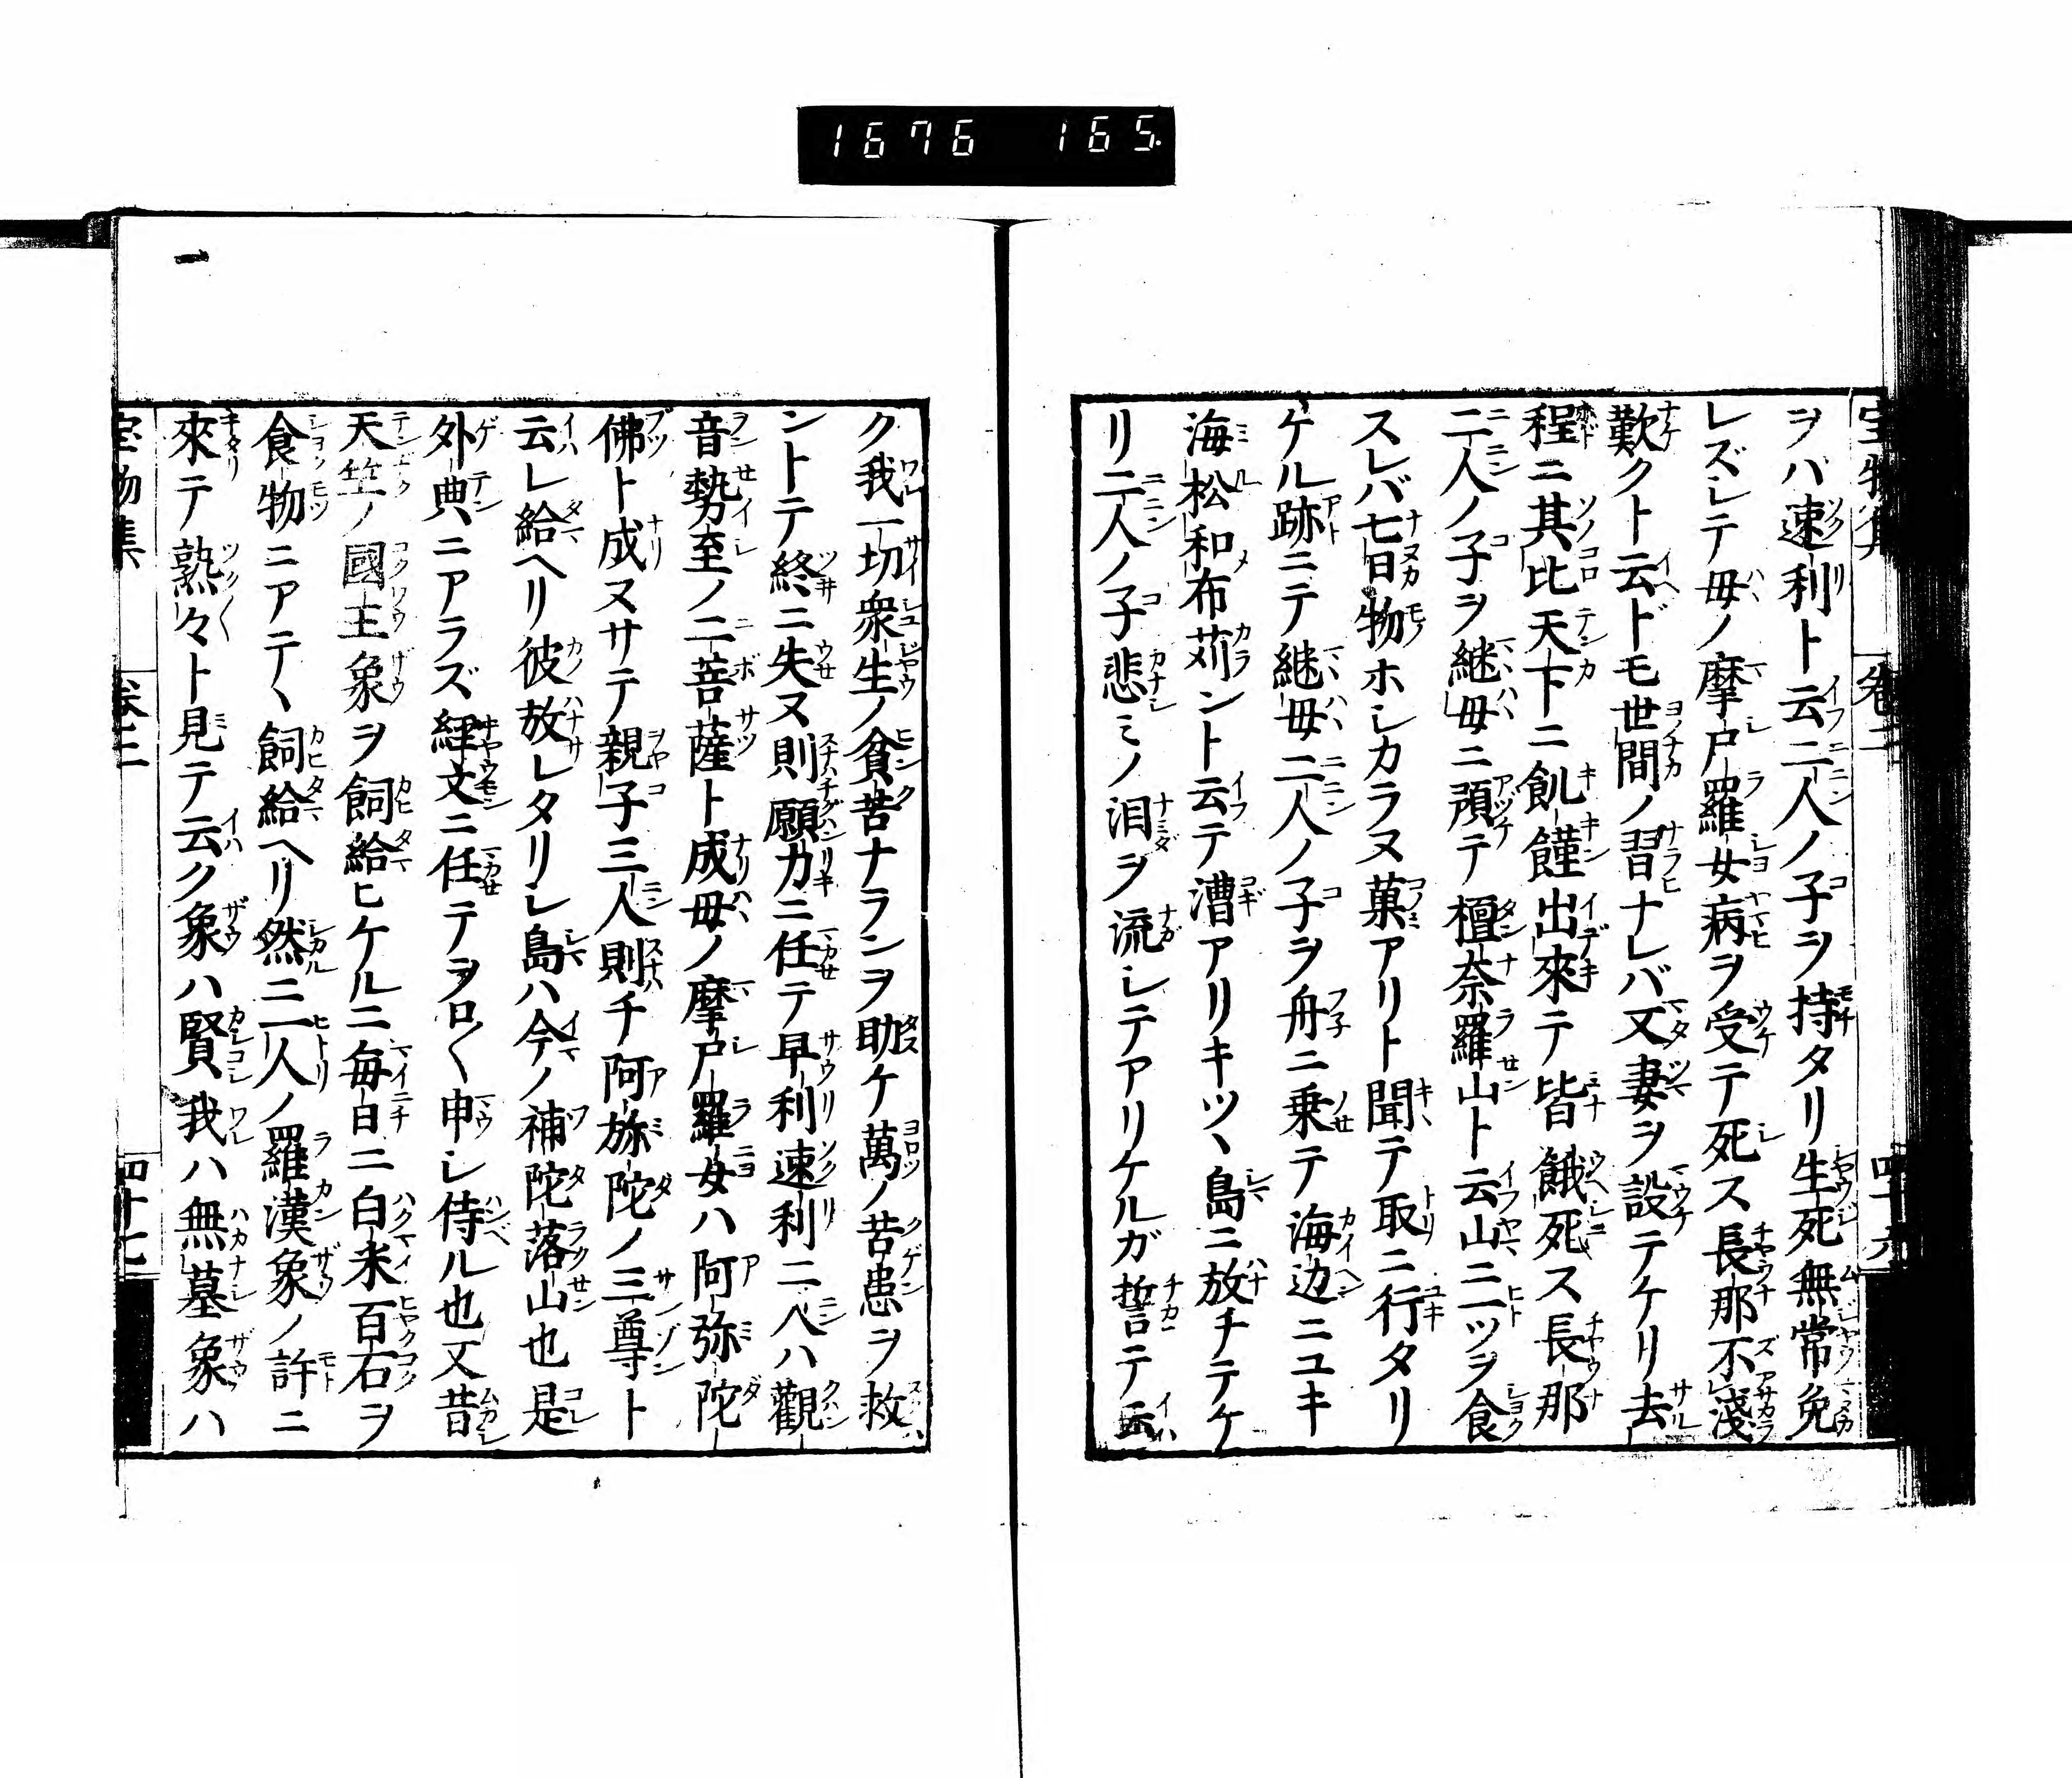 1676 165
宝物集 巻二 四十六
ヲバ速利ト云二人ノ子ヲ持タリ生死無常免
レズシテ母ノ摩尸羅女病ヲ受テ死ス長那不淺
歎クト云ドモ世間ノ習ナレバ又妻ヲ設テケリ去
程ニ其比天下ニ飢饉出來テ皆餓死ス長那
二人ノ子ヲ継母ニ預テ檀奈羅山ト云山ニ一ツヲ食
スレバ七日物ホシカラヌ菓アリト聞テ取ニ行タリ
ケル跡ニテ継母二人ノ子ヲ舟ニ乗テ海辺ニユキ
海松和布苅ント云テ漕アリキツヽ島ニ放チテケ
リ二人ノ子悲ミノ泪ヲ流シテアリケルガ誓テ云
ク我一切衆生ノ貧苦ナランヲ助ケ萬ノ苦患ヲ救
ントテ終ニ失ヌ則願力ニ任テ早利速利二人ハ觀
音勢至ノ二菩薩ト成母ノ摩尸羅女ハ阿弥陀
佛ト成ヌサテ親子三人則チ阿弥陀ノ三尊ト
云レ給ヘリ彼放レタリシ島ハ今ノ補陀落山也是
外典ニアラズ経文ニ任テヲロ〱申シ侍ル也又昔
天竺ノ國王象ヲ飼給ヒケルニ毎日ニ白米百石ヲ
食物ニアテヽ飼給ヘリ然ニ一人ノ羅漢象ノ許ニ
來テ熟々ト見テ云ク象ハ賢我ハ無墓象ハ
宝物集 巻二 四十七